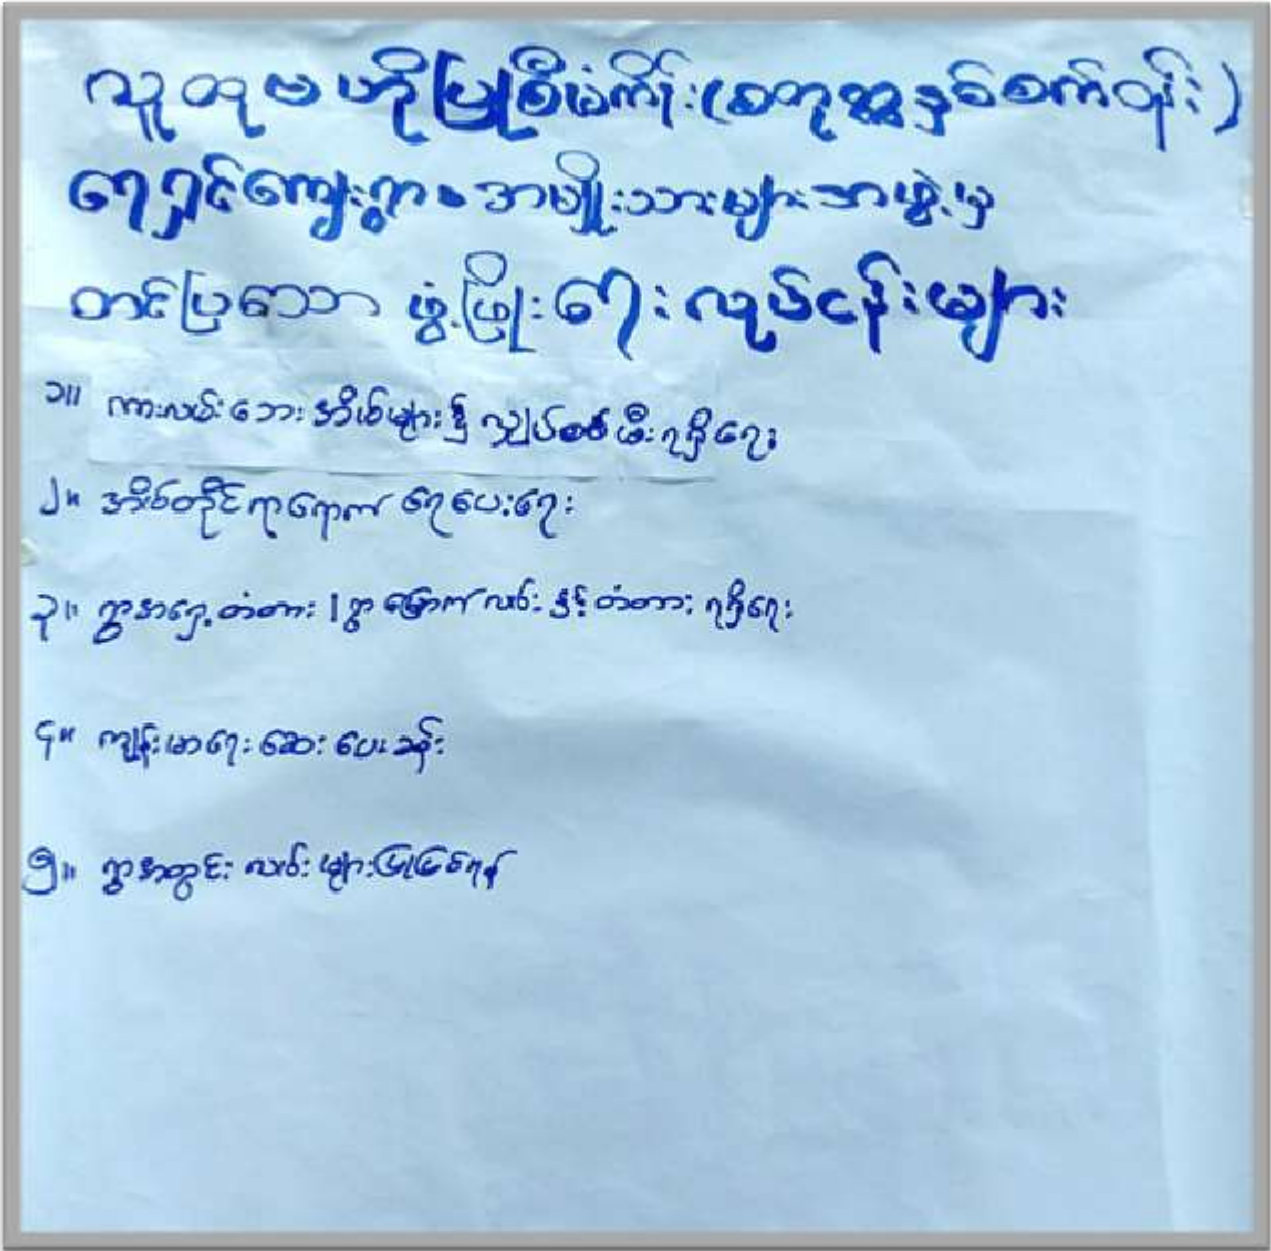 လူထုဗဟိုပြုစီမံကိန်း(စတုတ္ထနှစ်စက်ဝန်း)
ရေရှင်ကျေးရွာ အမျိုးသားများအဖွဲ့မှ
တင်ပြသော ဖွံ့ဖြိုးရေးလုပ်ငန်းများ
၁။ ကားလမ်းဘေးအိမ်များ၌ လျှပ်စစ်မီးရရှိရေး
၂။ အိမ်တိုင်ရာရောက် ရေပေးရေး
၃။ ရွာအရှေ့တံတား | ရွာမြောက်လမ်း နှင့် တံတား ရရှိရေး
၄။ ကျန်းမာရေးဆေးပေးခန်း
၅။ ရွာအတွင်း လမ်းများပြုပြင်ရန်